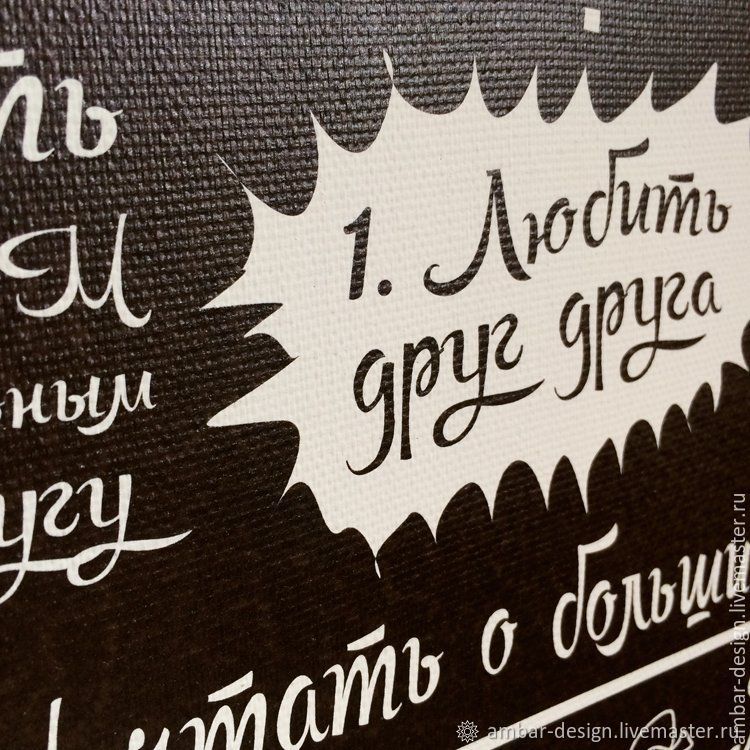 1. Любить
друг друга
ть
М
ным
угу
тать о больш
ambar-design.livemaster.ru
ambar-design.livemaster.ru